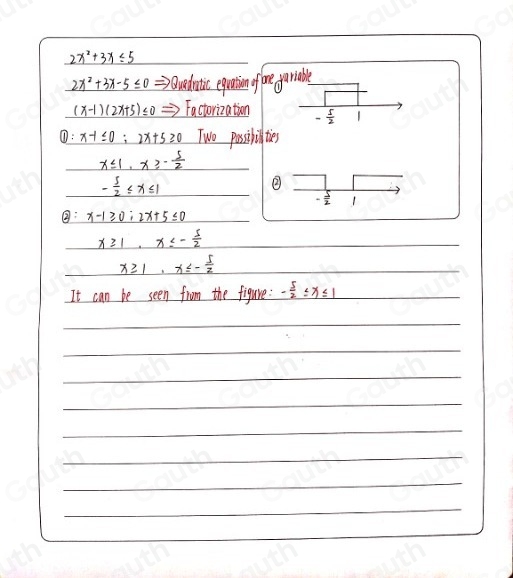 2x²+3x≤5
2x²+3x-5≤0 ⇒ Quadratic equation of one variable
(x-1)(2x+5)≤0 ⇒ Factorization
①: x-1≤0 ; 2x+5≥0 Two possibilities
x≤1 . x≥-5/2
-5/2≤x≤1
②: x-1≥0 ; 2x+5≤0
x≥1 . x≤-5/2
x≥1 . x≤-5/2
It can be seen from the figure: -5/2≤x≤1
①
-5/2 1
②
-5/2 1
Gauth